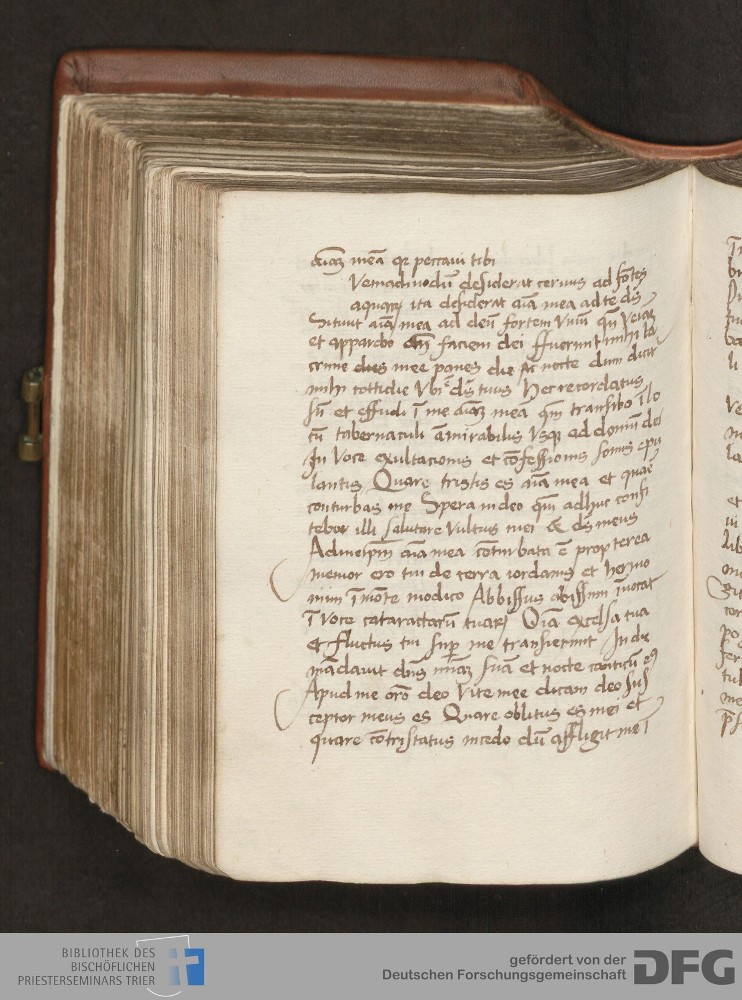 aīaʒ meā qꝛ peccaui tibi
Vemadmodū desiderat ceruus ad fōtes
aquaꝝ ita desiderat aīa mea ad te ds
Sitiuit aīa mea ad deū fortem viuū qn̄ veiaʒ
et apparebo an̄ faciem dei ffuerunt mihi la
crime mee panes die ac nocte dum dicit
mihi cottidie vbi ē ds tuus Hec recordatus
sū et effudi ī me aīaʒ mea qm̄ transibo ī lo
cū tabernaculi āmirabilis vsqꝫ ad domū dei
In voce exultacionis et cōfessionis sonus epu
lantis Quare tristis es aīa mea et quare
conturbas me Spera in deo qm̄ adhuc confi
tebor illi salutare vultus mei & ds meus
Ad meipm̄ aīa mea cōturbata ē propterea
memor ero tui de terra iordanis et hermo
niim ī mōte modico Abbissus abissum īuocat
ī voce cataractarū tuarꝝ Oīa excelsa tua
et fluctus tui sup̄ me transierunt In die
mādauit dn̄s mīaʒ suā et nocte canticū eꝰ
Apud me orō deo vite mee dicam deo sus
ceptor meus es Quare oblitus es mei et
quare cōtristatus incedo dū affligit me ī
BIBLIOTHEK DES
BISCHÖFLICHEN
PRIESTERSEMINARS TRIER
gefördert von der
Deutschen Forschungsgemeinschaft
DFG